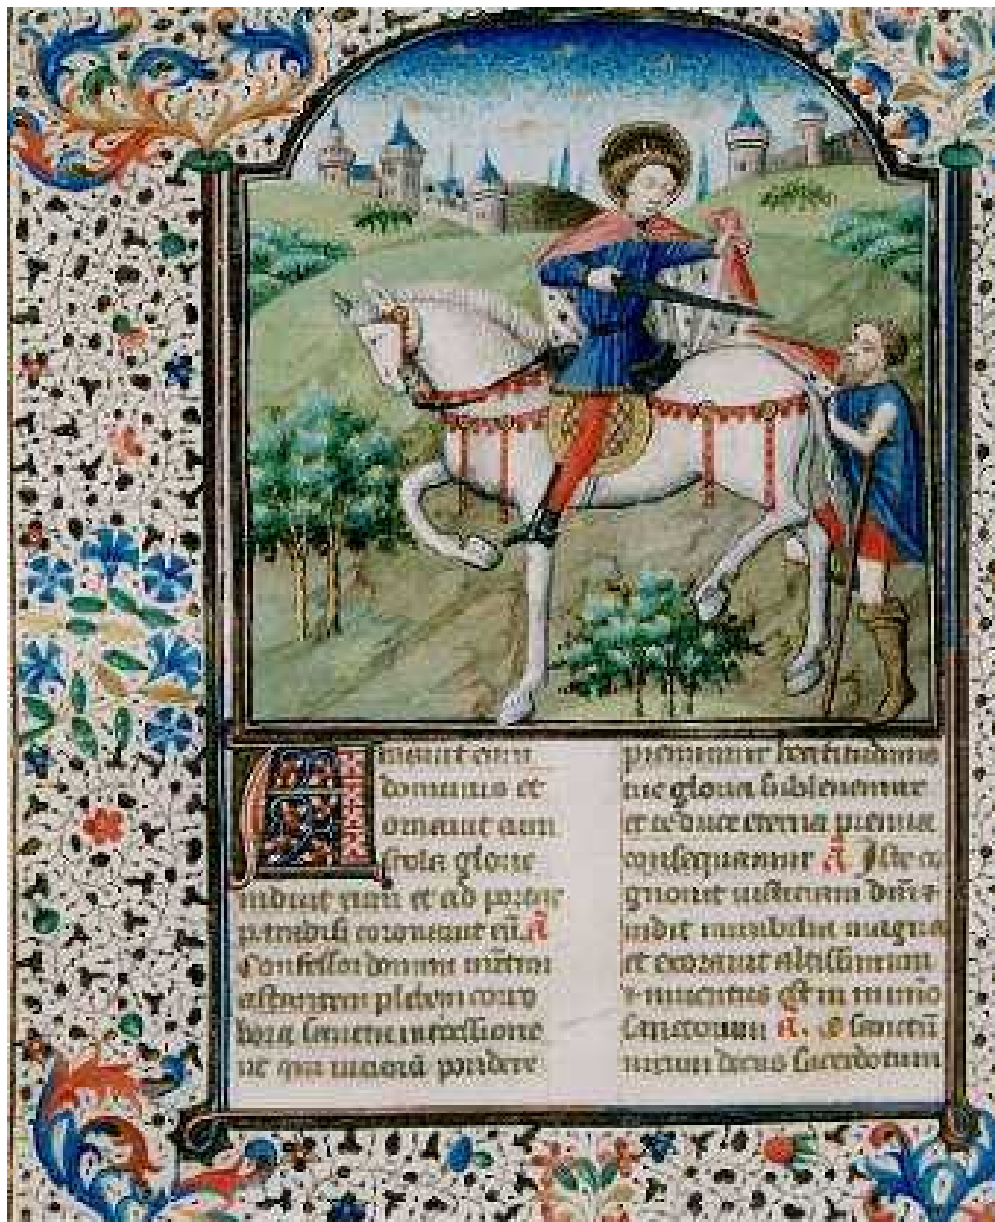 Amauit eum
dominus et
ornauit eum
stola glorie
induit eum et ad portas
paradisi coronauit eū. ā
Confessor domini
astantem plebem corro
bora sancta intercessione
ut qui uitiorū pondere
premimur beatitudinis
tue gloria subleuemur
et te duce eterna premia
consequamur ā Iste co
gnouit iusticiam dn̄i ⁊
uidit mirabilia magna
et exorauit altissimum
⁊ inuentus est in numero
sanctorum ā. O
decus sacerdotum